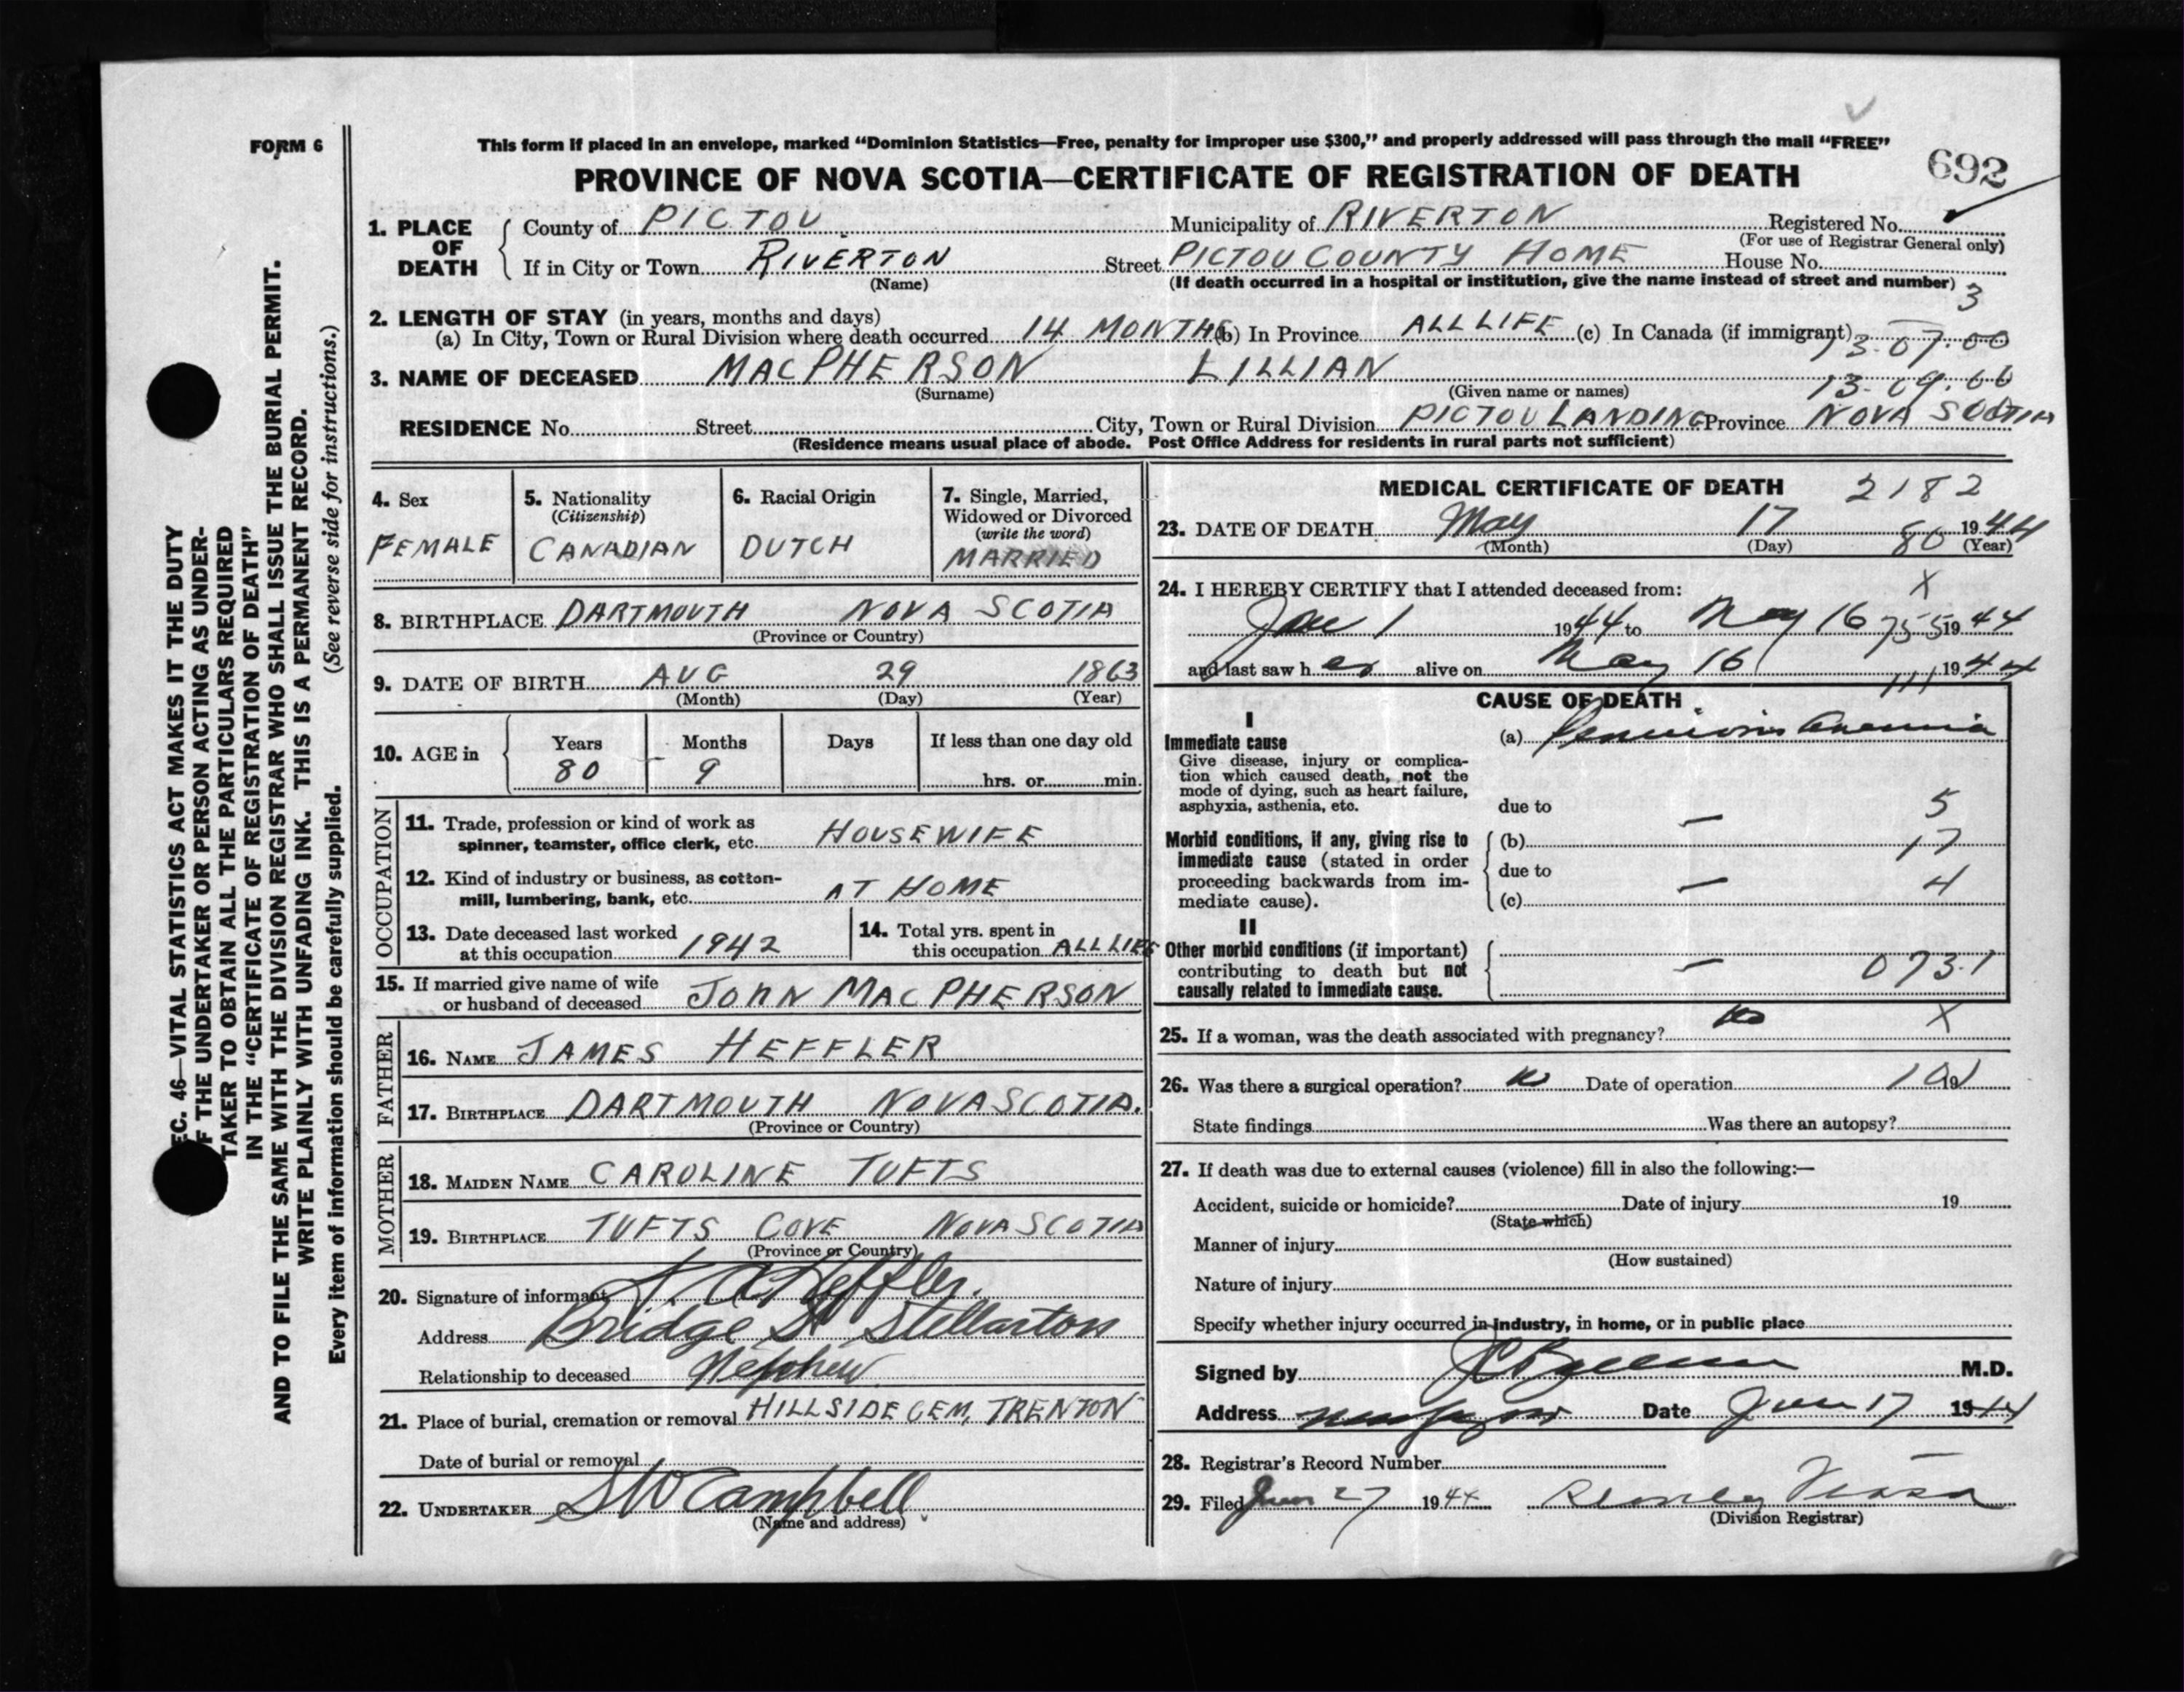 FORM 6
This form if placed in an envelope, marked “Dominion Statistics—Free, penalty for improper use $300,” and properly addressed will pass through the mail “FREE”
692
PROVINCE OF NOVA SCOTIA—CERTIFICATE OF REGISTRATION OF DEATH
1. PLACE OF DEATH
County of PICTOU Municipality of RIVERTON Registered No.
(For use of Registrar General only)
If in City or Town RIVERTON Street PICTOU COUNTY HOME House No.
(Name) (If death occurred in a hospital or institution, give the name instead of street and number)
3
2. LENGTH OF STAY (in years, months and days)
(a) In City, Town or Rural Division where death occurred 14 MONTHS (b) In Province ALL LIFE (c) In Canada (if immigrant)
13-07.00
3. NAME OF DECEASED MACPHERSON LILLIAN
(Surname) (Given name or names) 13-09.66
RESIDENCE No. Street City, Town or Rural Division PICTOU LANDING Province NOVA SCOTIA
(Residence means usual place of abode. Post Office Address for residents in rural parts not sufficient)
EC. 46—VITAL STATISTICS ACT MAKES IT THE DUTY
F THE UNDERTAKER OR PERSON ACTING AS UNDER-
TAKER TO OBTAIN ALL THE PARTICULARS REQUIRED
IN THE “CERTIFICATE OF REGISTRATION OF DEATH”
AND TO FILE THE SAME WITH THE DIVISION REGISTRAR WHO SHALL ISSUE THE BURIAL PERMIT.
WRITE PLAINLY WITH UNFADING INK. THIS IS A PERMANENT RECORD.
Every item of information should be carefully supplied. (See reverse side for instructions.)
4. Sex
FEMALE
5. Nationality
(Citizenship)
CANADIAN
6. Racial Origin
DUTCH
7. Single, Married,
Widowed or Divorced
(write the word)
MARRIED
8. BIRTHPLACE DARTMOUTH NOVA SCOTIA
(Province or Country)
9. DATE OF BIRTH AUG 29 1863
(Month) (Day) (Year)
10. AGE in
Years Months Days If less than one day old
80 9 hrs. or min.
OCCUPATION
11. Trade, profession or kind of work as
spinner, teamster, office clerk, etc. HOUSEWIFE
12. Kind of industry or business, as cotton-
mill, lumbering, bank, etc. AT HOME
13. Date deceased last worked
at this occupation 1942
14. Total yrs. spent in
this occupation ALL LIFE
15. If married give name of wife
or husband of deceased JOHN MACPHERSON
FATHER
16. NAME JAMES HEFFLER
17. BIRTHPLACE DARTMOUTH NOVA SCOTIA.
(Province or Country)
MOTHER
18. MAIDEN NAME CAROLINE TUFTS
19. BIRTHPLACE TUFTS COVE NOVA SCOTIA
(Province or Country)
20. Signature of informant A Heffler.
Address Bridge St Stellarton
Relationship to deceased Nephew
21. Place of burial, cremation or removal HILLSIDE CEM, TRENTON
Date of burial or removal
22. UNDERTAKER SW Campbell
(Name and address)
MEDICAL CERTIFICATE OF DEATH 2182
23. DATE OF DEATH May 17 1944
(Month) (Day) 80 (Year)
24. I HEREBY CERTIFY that I attended deceased from: X
Jan 1 1944 to May 16 755 1944
and last saw her alive on May 16 1944
111
CAUSE OF DEATH
I
Immediate cause
Give disease, injury or complica-
tion which caused death, not the
mode of dying, such as heart failure,
asphyxia, asthenia, etc.
(a) Pernicious Anemia
due to — 5
Morbid conditions, if any, giving rise to
immediate cause (stated in order
proceeding backwards from im-
mediate cause).
(b) 17
due to
— 4
(c)
II
Other morbid conditions (if important)
contributing to death but not
causally related to immediate cause.
— 073.1
25. If a woman, was the death associated with pregnancy? No X
26. Was there a surgical operation? No Date of operation 19
State findings Was there an autopsy?
27. If death was due to external causes (violence) fill in also the following:—
Accident, suicide or homicide? Date of injury 19
(State which)
Manner of injury
(How sustained)
Nature of injury
Specify whether injury occurred in industry, in home, or in public place
Signed by M.D.
Address Date June 17 1944
28. Registrar's Record Number
29. Filed June 27 1944
(Division Registrar)